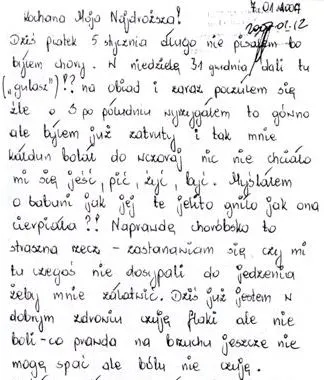 7.01.2007
2007-01-12
Kochana Moja Najdroższa!
Dziś piątek 5 stycznia długo nie pisałem bo
byłem chory. W niedzielę 31 grudnia dali tu
(„gulasz")?? na obiad i zaraz poczułem się
źle o 3 po południu wyrzygałem to gówno
ale byłem już zatruty i tak mnie
kałdun bolał do wczoraj nic nie chciało
mi się jeść, pić, żyć, być. Myślałem
o babuni jak jej te jelito gniło jak ona
cierpiała?! Naprawdę choróbsko to
straszna rzecz – zastanawiam się czy mi
tu czegoś nie dosypali do jedzenia
żeby mnie załatwić. Dziś już jestem w
dobrym zdrowiu czuję flaki ale nie
boli – co prawda na brzuchu jeszcze nie
mogę spać ale bólu nie czuję.